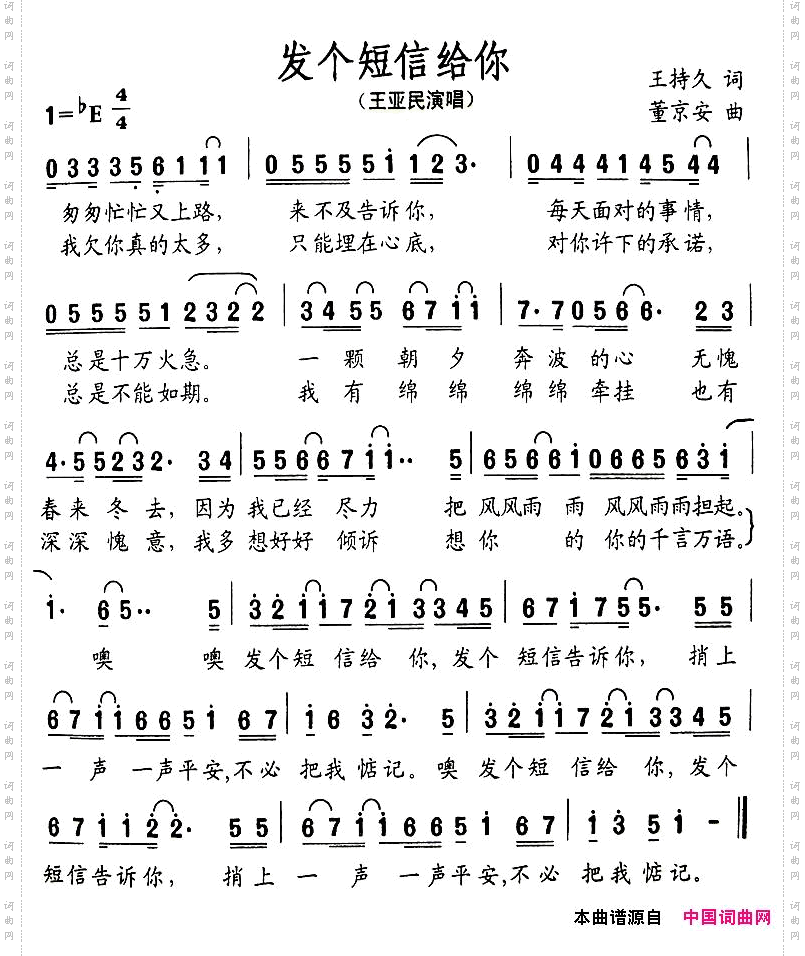 发个短信给你
（王亚民演唱）
王持久 词
董京安 曲
1=♭E 4/4
0 3 3 3 5 6 1 1 1 | 0 5 5 5 5 5 i 1 2 3· | 0 4 4 4 1 4 5 4 4 |
匆匆忙忙又上路， 来不及告诉你， 每天面对的事情，
我欠你真的太多， 只能埋在心底， 对你许下的承诺，
0 5 5 5 5 5 1 2 3 2 2 | 3 4 5 5 6 7 i i | 7· 7 0 5 6 6· 2 3 |
总是十万火急。 一颗朝夕奔波的心 无愧
总是不能如期。 我有绵绵绵绵牵挂 也有
4· 5 5 2 3 2· 3 4 | 5 5 6 6 7 i i·· 5 | 6 5 6 6 i 0 6 6 5 6 3 i |
春来冬去，因为我已经尽力 把风风雨雨风风雨雨担起。
深深愧意，我多想好好倾诉 想你的你的千言万语。
i· 6 5·· 5 | 3 2 i i 7 2 i 3 3 4 5 | 6 7 i 7 5 5· 5 5 |
噢 噢发个短信给你，发个短信告诉你，捎上
6 7 i i 6 6 5 i 6 7 | i 6 3 2· 5 | 3 2 i i 7 2 i 3 3 4 5 |
一声一声平安，不必把我惦记。噢发个短信给你，发个
6 7 i i 2 2· 5 5 | 6 7 i i 6 6 5 i 6 7 | i 3 5 i - ‖
短信告诉你，捎上一声一声平安，不必把我惦记。
本曲谱源自 中国词曲网